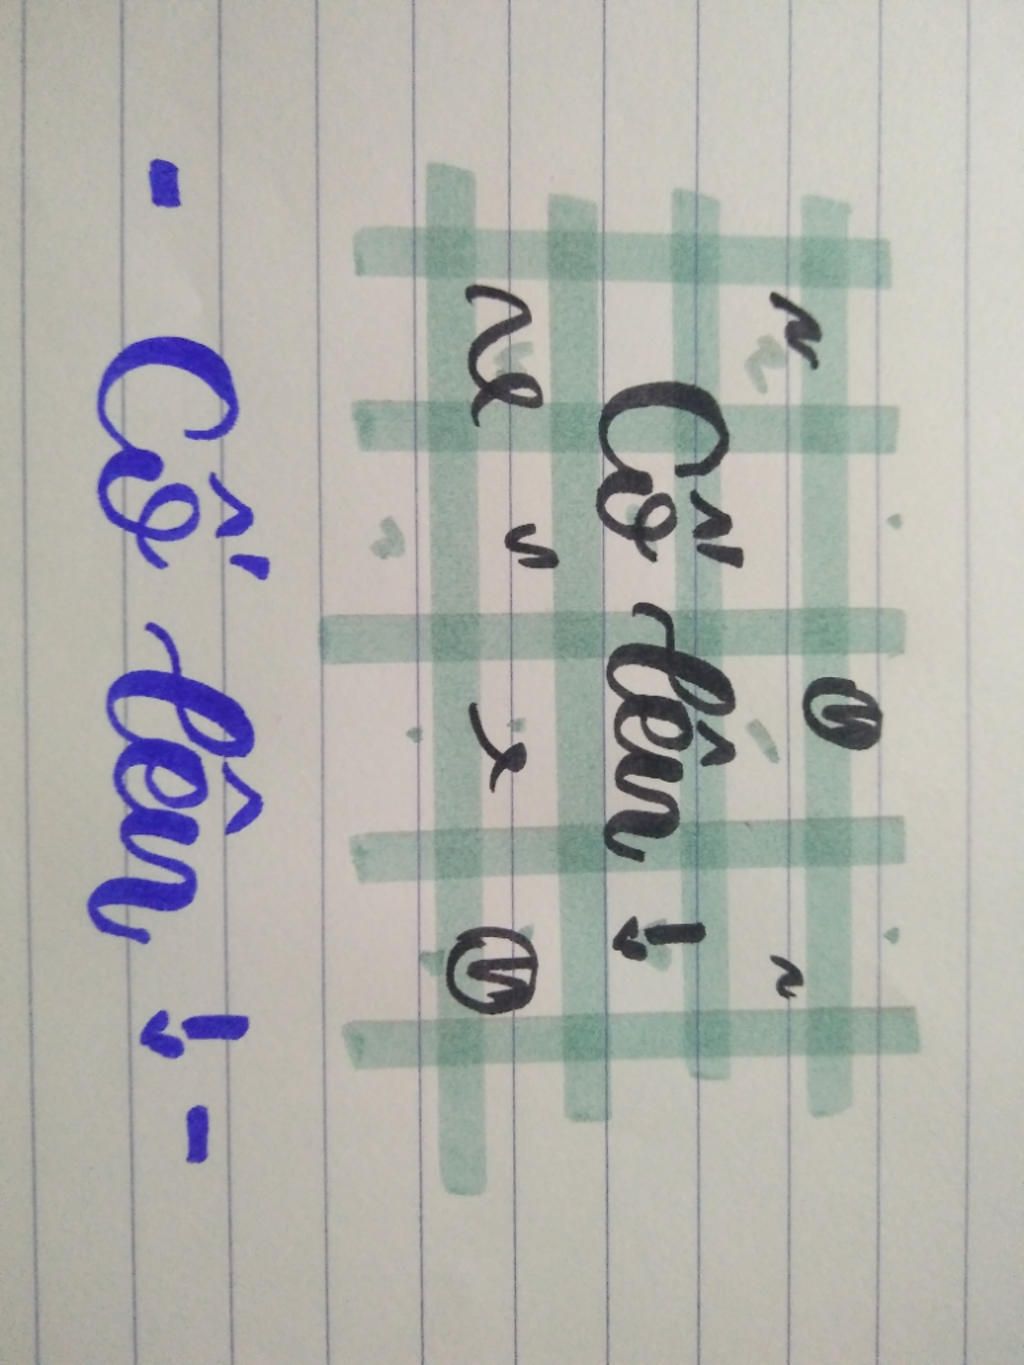 Cố lên !
- Cố lên ! -